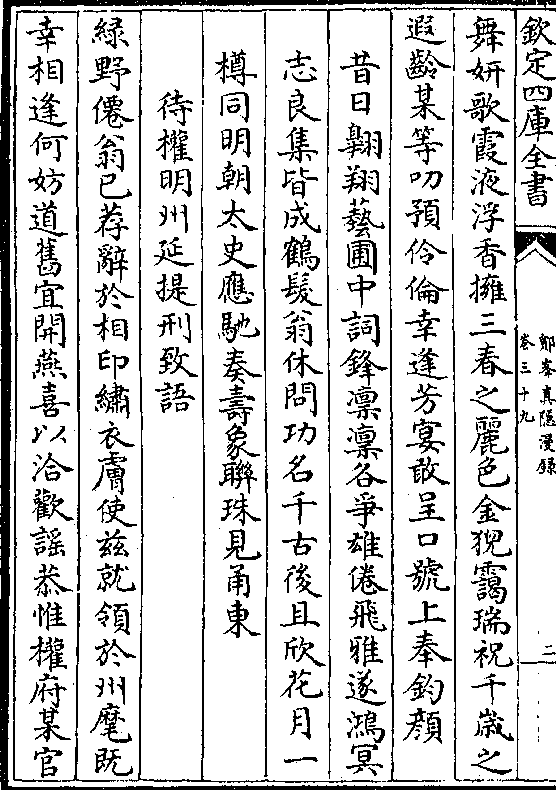 欽定四庫全書
鄮峯真隱漫錄
卷三十九
二
舞妍歌霞液浮香擁三春之麗色金猊靄瑞祝千歲之
遐齡某等叨預伶倫幸逢芳宴敢呈口號上奉鈞顔
昔日翺翔藝圃中詞鋒凛凛各爭雄倦飛雅遂鴻冥
志良集皆成鶴髮翁休問功名千古後且欣花月一
樽同明朝太史應馳奏壽象聯珠見甬東
待權明州延提刑致語
緑野僊翁已荐辭於相印繡衣膚使兹就領於州麾既
幸相逢何妨道舊宜開燕喜以洽歡謡恭惟權府某官